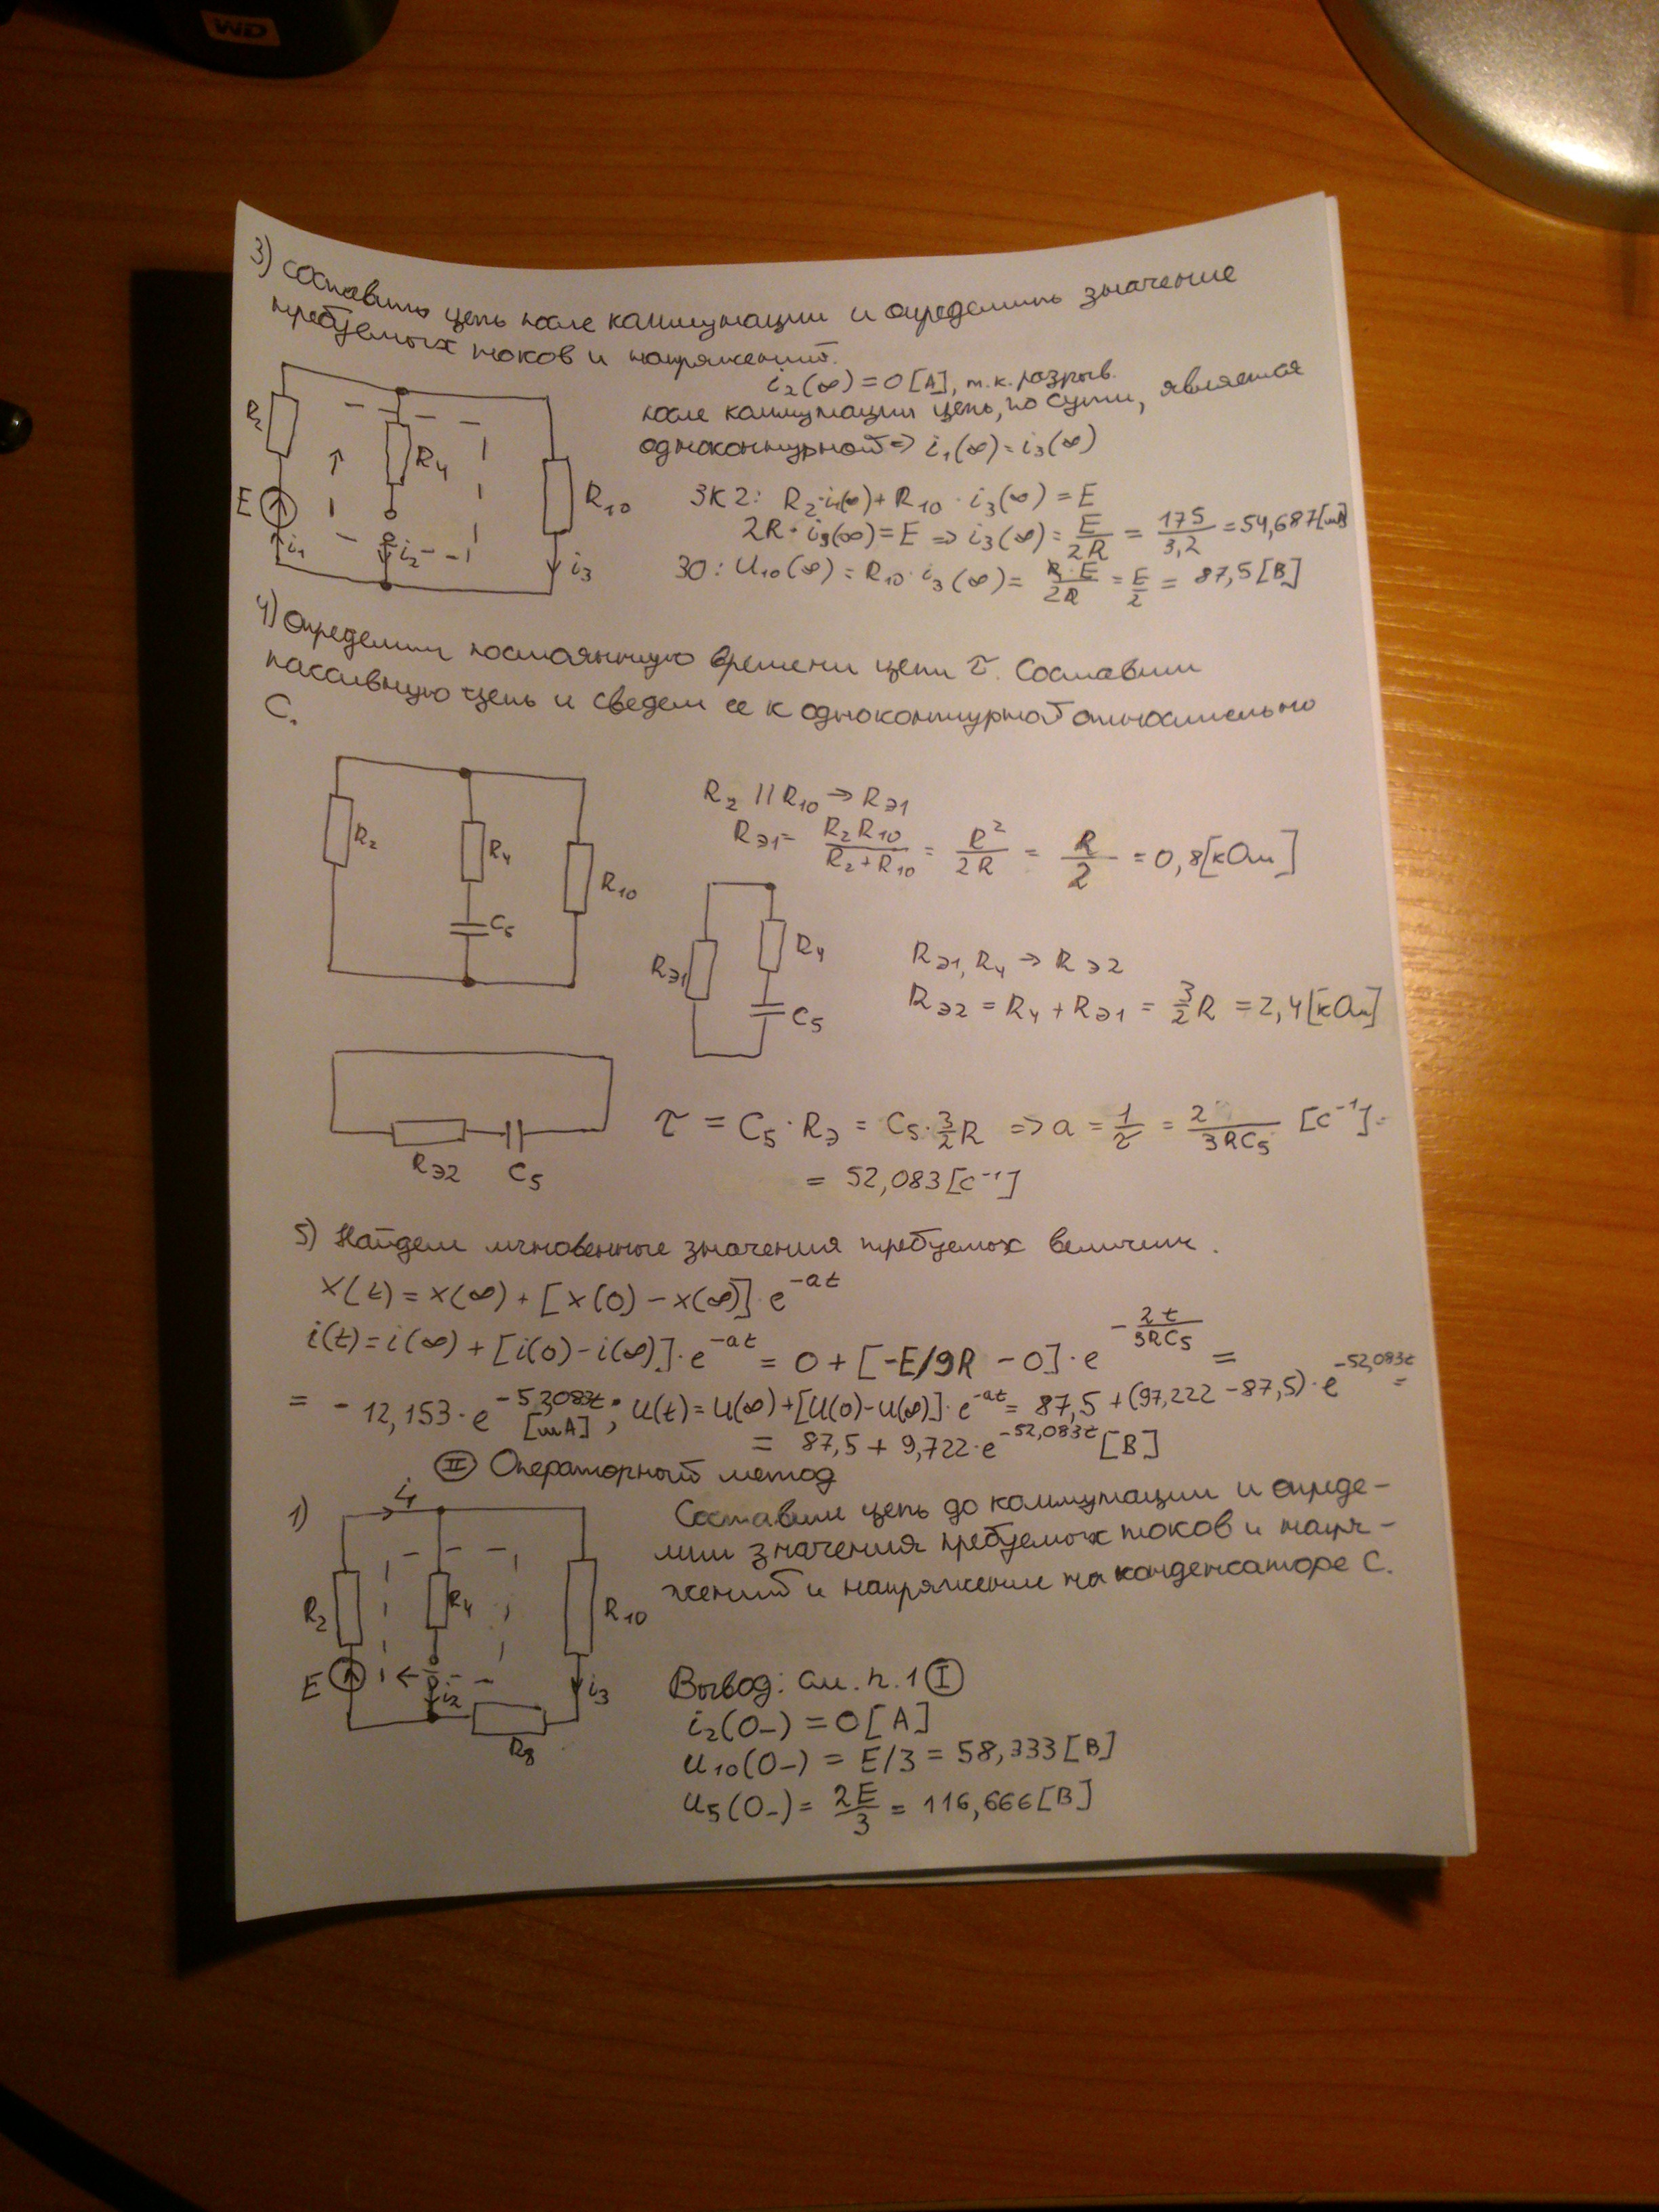 WD
3) Составить цепь после коммутации и определить значение
требуемых токов и напряжений.
i₂(∞) = 0 [A], т.к. разрыв.
после коммутации цепь, по сути, является
одноконтурной => i₁(∞) = i₃(∞)
R₂
R₄
R₁₀
E
i₁
i₂
i₃
ЗК2: R₂·i₁(∞) + R₁₀·i₃(∞) = E
2R·i₃(∞) = E => i₃(∞) = E/2R = 175/3,2 = 54,687 [mA]
ЗО: U₁₀(∞) = R₁₀·i₃(∞) = R·E/2R = E/2 = 87,5 [В]
4) Определим постоянную времени цепи τ. Составим
пассивную цепь и сведем ее к одноконтурной относительно
C.
R₂
R₄
R₁₀
C₅
R₂ || R₁₀ → Rэ1
Rэ1 = R₂R₁₀/(R₂+R₁₀) = R²/2R = R/2 = 0,8 [кОм]
Rэ1
R₄
C₅
Rэ1, R₄ → Rэ2
Rэ2 = R₄ + Rэ1 = 3/2 R = 2,4 [кОм]
Rэ2
C₅
τ = C₅·Rэ = C₅·3/2 R => a = 1/τ = 2/3RC₅ [с⁻¹] =
= 52,083 [с⁻¹]
5) Найдем мгновенные значения требуемых величин.
x(t) = x(∞) + [x(0) − x(∞)]·e^(−at)
i(t) = i(∞) + [i(0) − i(∞)]·e^(−at) = 0 + [−E/9R − 0]·e^(−2t/3RC₅) =
= −12,153·e^(−52,083t) [mA]; U(t) = U(∞) + [U(0) − U(∞)]·e^(−at) = 87,5 + (97,222 − 87,5)·e^(−52,083t) =
= 87,5 + 9,722·e^(−52,083t) [В]
II Операторный метод
1)
i₁
R₂
R₄
R₁₀
E
i₂
i₃
R₈
Составим цепь до коммутации и опреде-
лим значения требуемых токов и напря-
жений и напряжение на конденсаторе C.
Вывод: см. п. 1 I
i₂(0₋) = 0 [A]
U₁₀(0₋) = E/3 = 58,333 [В]
U₅(0₋) = 2E/3 = 116,666 [В]